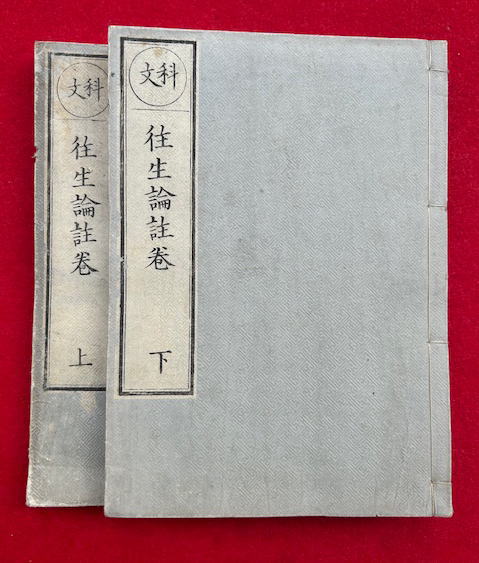 科文
往生論註卷
下
科文
往生論註卷
上